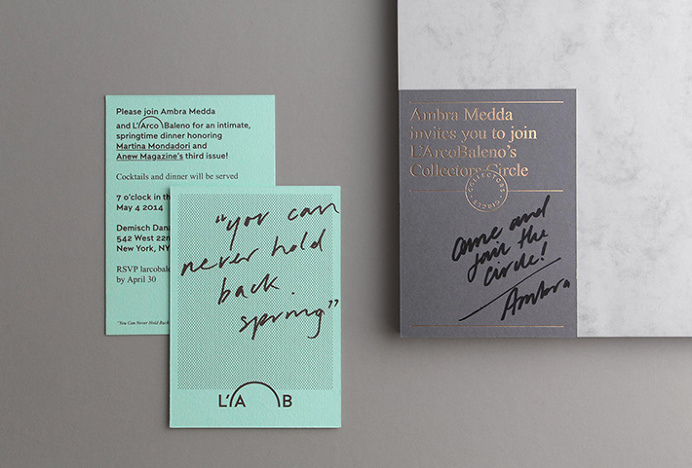 Please join Ambra Medda
and L'ArcoBaleno for an intimate,
springtime dinner honoring
Martina Mondadori and
Anew Magazine's third issue!
Cocktails and dinner will be served
7 o'clock in the
May 4 2014
Demisch Dana
542 West 22n
New York, NY
RSVP larcobale
by April 30
"You Can Never Hold Back
"you can
never hold
back
spring"
L'A B
Ambra Medda
invites you to join
L'ArcoBaleno's
Collectors Circle
COLLECTORS CIRCLE
come and
join the
circle!
Ambra